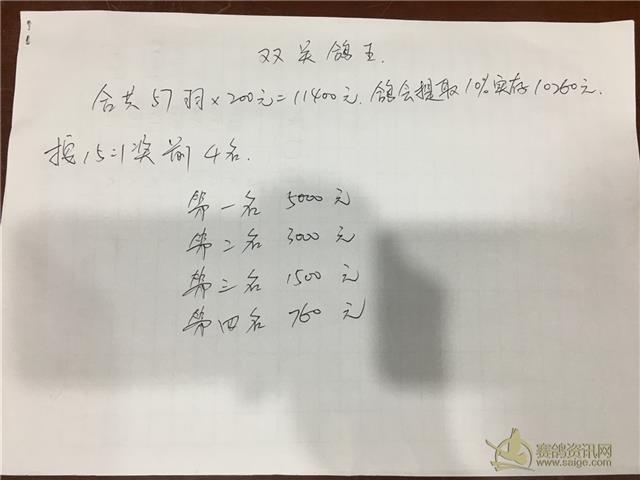 双关鸽王.
合共57羽×200元=11400元.鸽会提取10%实存10260元.
按15:1奖前4名.
第一名 5000元
第二名 3000元
第三名 1500元
第四名 760元
赛鸽资讯网
www.saige.com